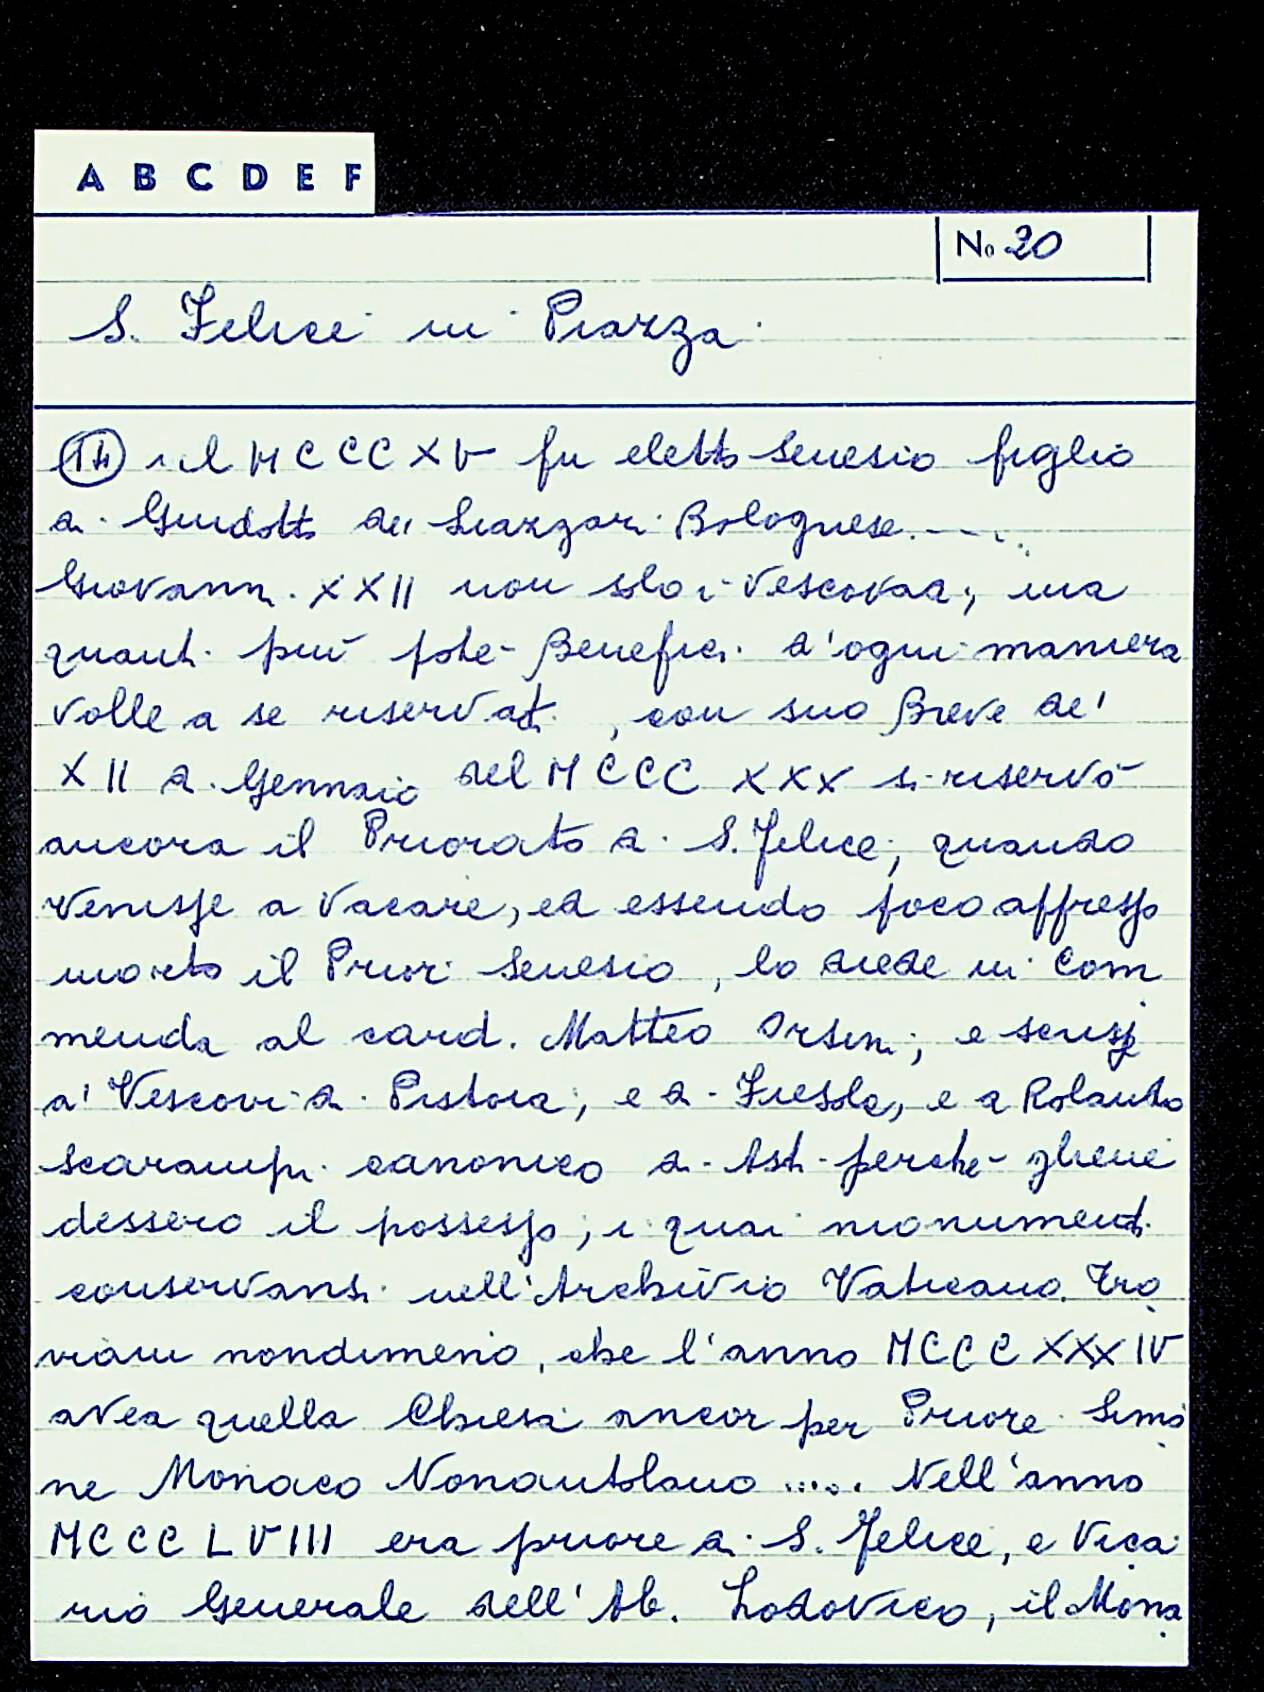 A B C D E F
No 20
S. Felice in Piazza
(14) nel MCCCXV fu eletto Senesio figlio
di Guidotto dei Liazzari Bolognese. - - -
Giovanni XXII non solo i Vescovadi, ma
quanti più potè Benefici d'ogni maniera
volle a se riservati, con suo Breve de'
XII di Gennaio del MCCCXXX si riservò
ancora il Priorato di S. Felice, quando
venisse a vacare, ed essendo poco appresso
morto il Prior Senesio, lo diede in Com
menda al card. Matteo Orsini; e scrisse
a' Vescovi di Pistoia, e di Fiesole, e a Rolando
Scarampi canonico di Asti perchè gliene
dessero il possesso; i quai monumenti
conservansi nell'Archivio Vaticano. Tro
viam nondimeno, che l'anno MCCCXXXIV
avea quella Chiesa ancor per Priore Simo
ne Monaco Nonantolano ..... Nell'anno
MCCCLVIII era priore di S. Felice, e Vica
rio Generale dell'Ab. Lodovico, il Mona